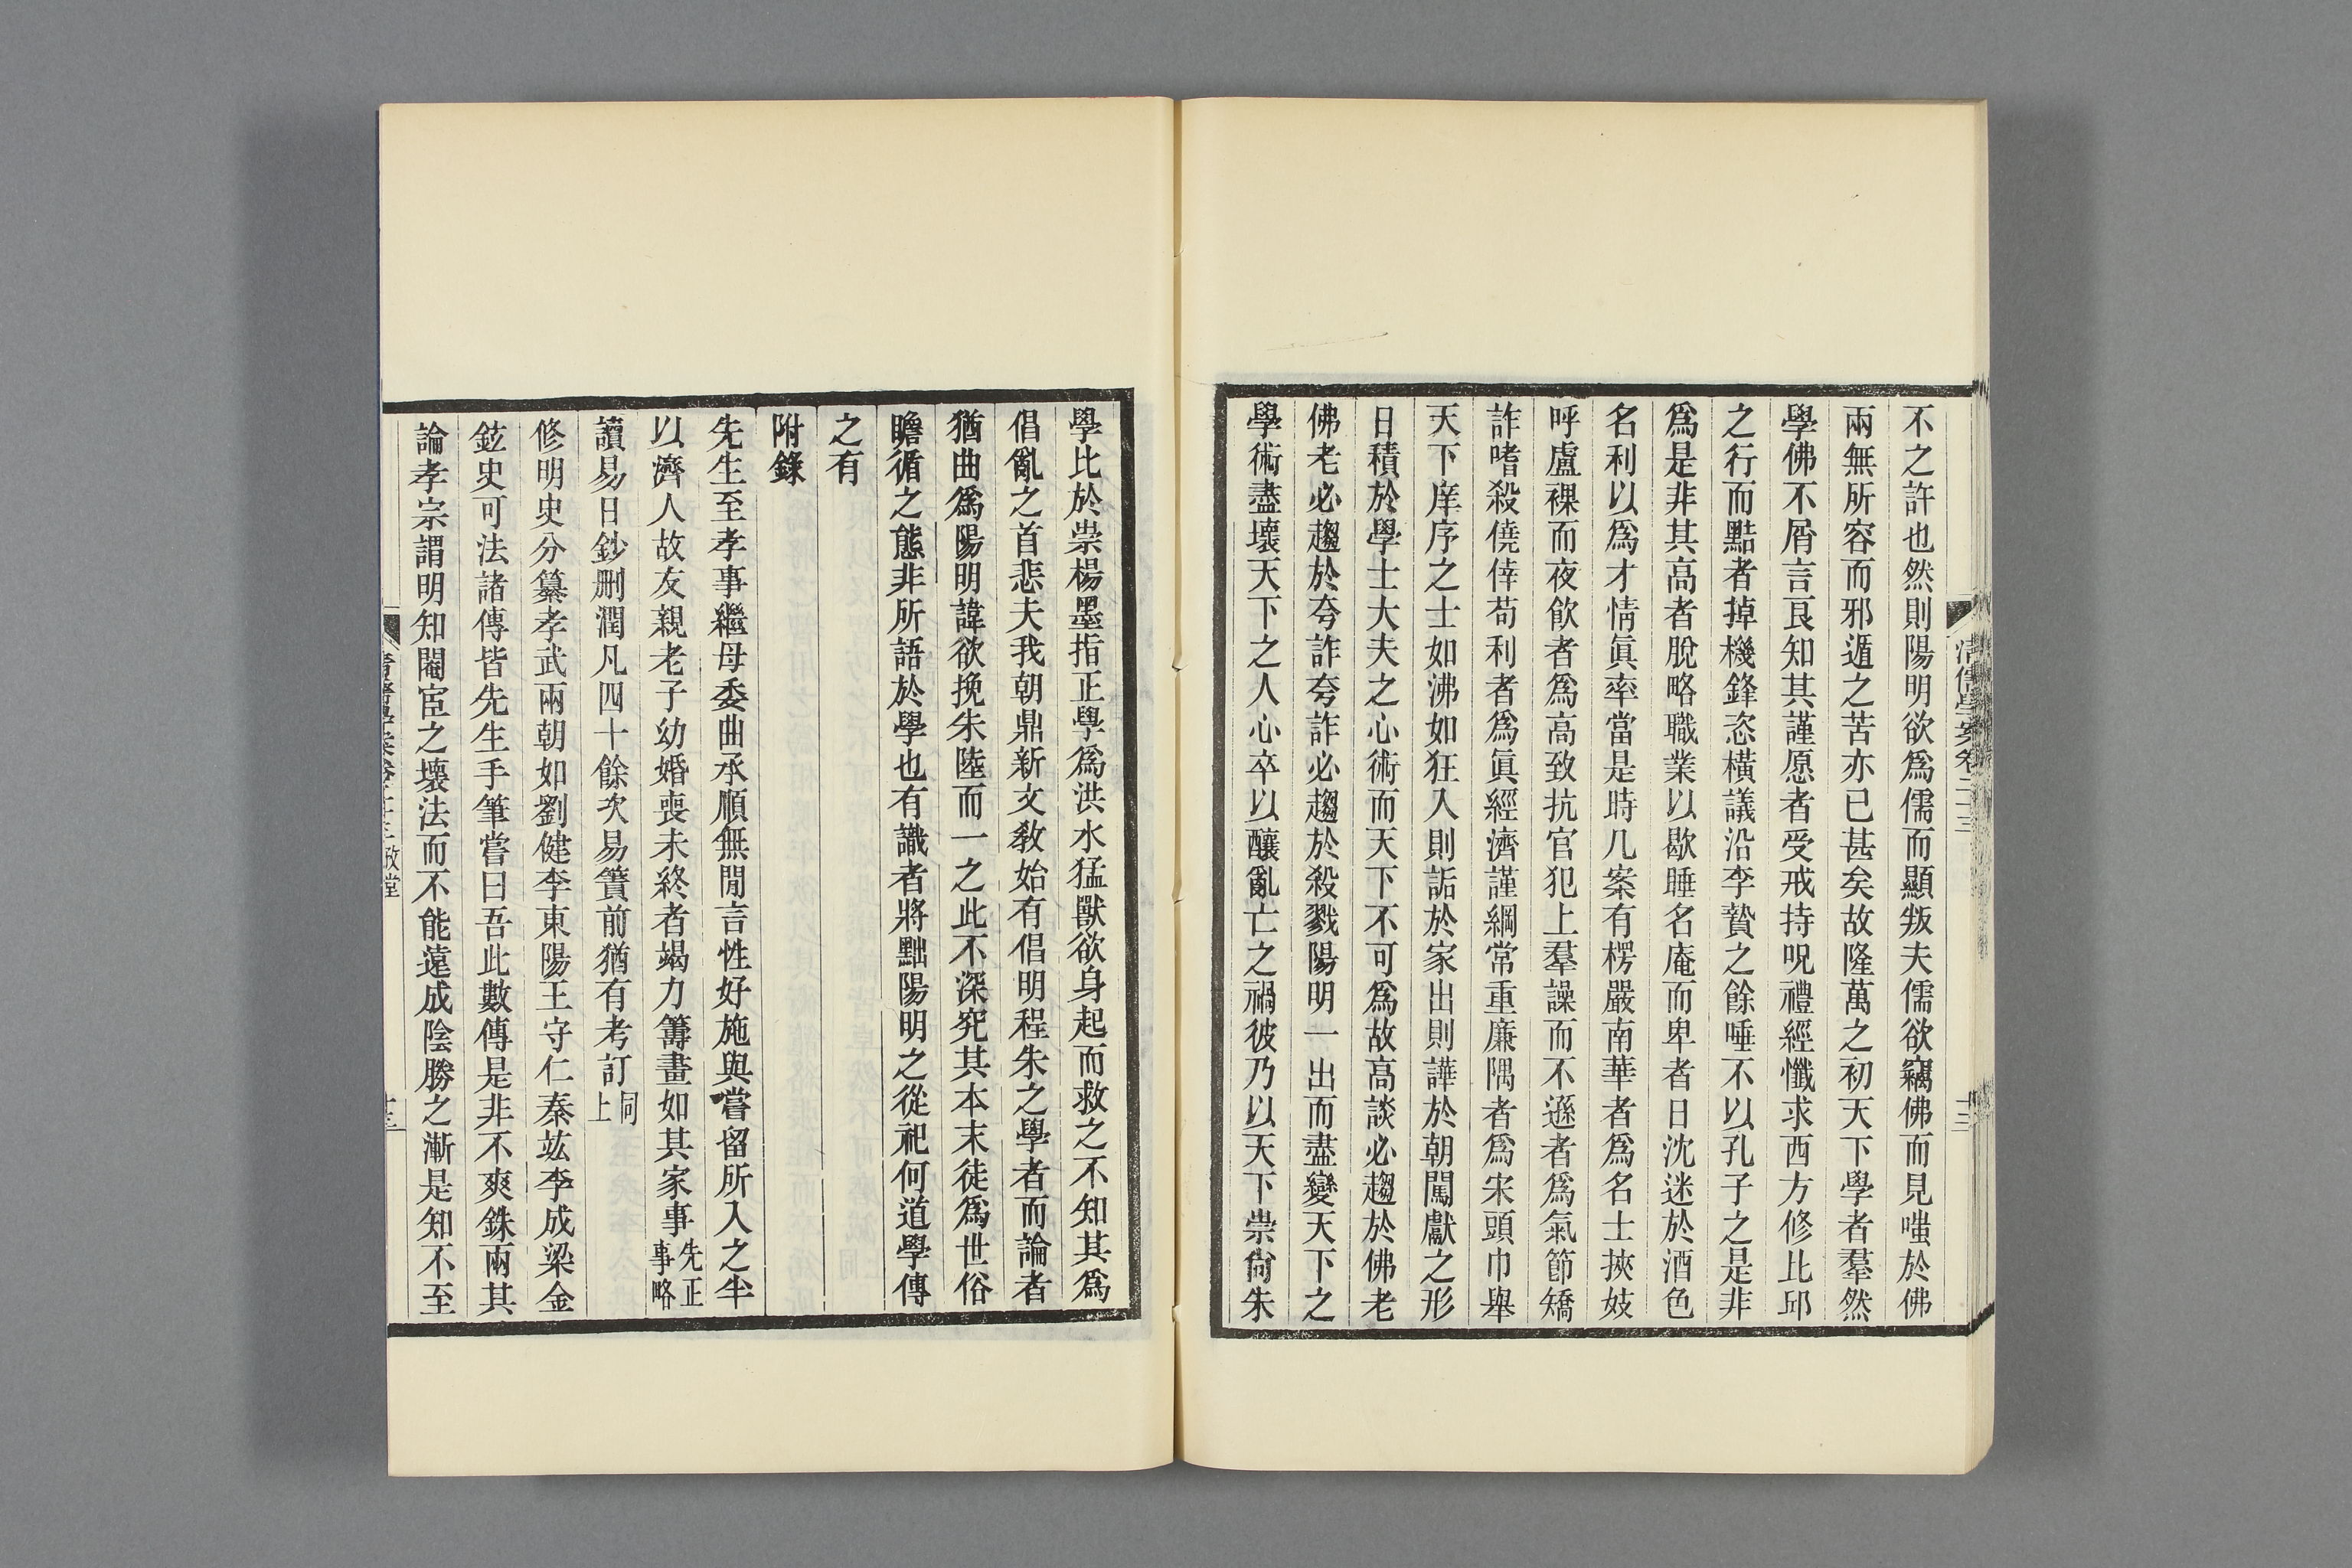 不之許也然則陽明欲爲儒而顯叛夫儒欲竊佛而見嗤於佛
兩無所容而邪遁之苦亦已甚矣故隆萬之初天下學者羣然
學佛不屑言良知其謹愿者受戒持呪禮經懺求西方修比邱
之行而黠者掉機鋒恣橫議沿李贄之餘唾不以孔子之是非
爲是非其高者脫略職業以歇睡名庵而卑者日沈迷於酒色
名利以爲才情眞率當是時几案有楞嚴南華者爲名士挾妓
呼盧裸而夜飮者爲高致抗官犯上羣譟而不遜者爲氣節矯
詐嗜殺僥倖苟利者爲眞經濟謹綱常重廉隅者爲宋頭巾舉
天下庠序之士如沸如狂入則詬於家出則譁於朝闖獻之形
日積於學士大夫之心術而天下不可爲故高談必趨於佛老
佛老必趨於夸詐夸詐必趨於殺戮陽明一出而盡變天下之
學術盡壞天下之人心卒以釀亂亡之禍彼乃以天下崇尙朱
清儒學案卷二十三
十三
學比於崇楊墨指正學爲洪水猛獸欲身起而救之不知其爲
倡亂之首悲夫我朝鼎新文敎始有倡明程朱之學者而論者
猶曲爲陽明諱欲挽朱陸而一之此不深究其本末徒爲世俗
瞻循之態非所語於學也有識者將黜陽明之從祀何道學傳
之有
附錄
先生至孝事繼母委曲承順無閒言性好施與嘗留所入之半
以濟人故友親老子幼婚喪未終者竭力籌畫如其家事先正事略
讀易日鈔刪潤凡四十餘次易簀前猶有考訂同上
修明史分纂孝武兩朝如劉健李東陽王守仁秦竑李成梁金
鉉史可法諸傳皆先生手筆嘗曰吾此數傳是非不爽銖兩其
論孝宗謂明知閹宦之壞法而不能遠成陰勝之漸是知不至